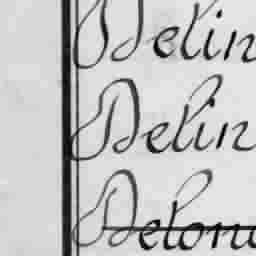 Delin
Delin
Delon